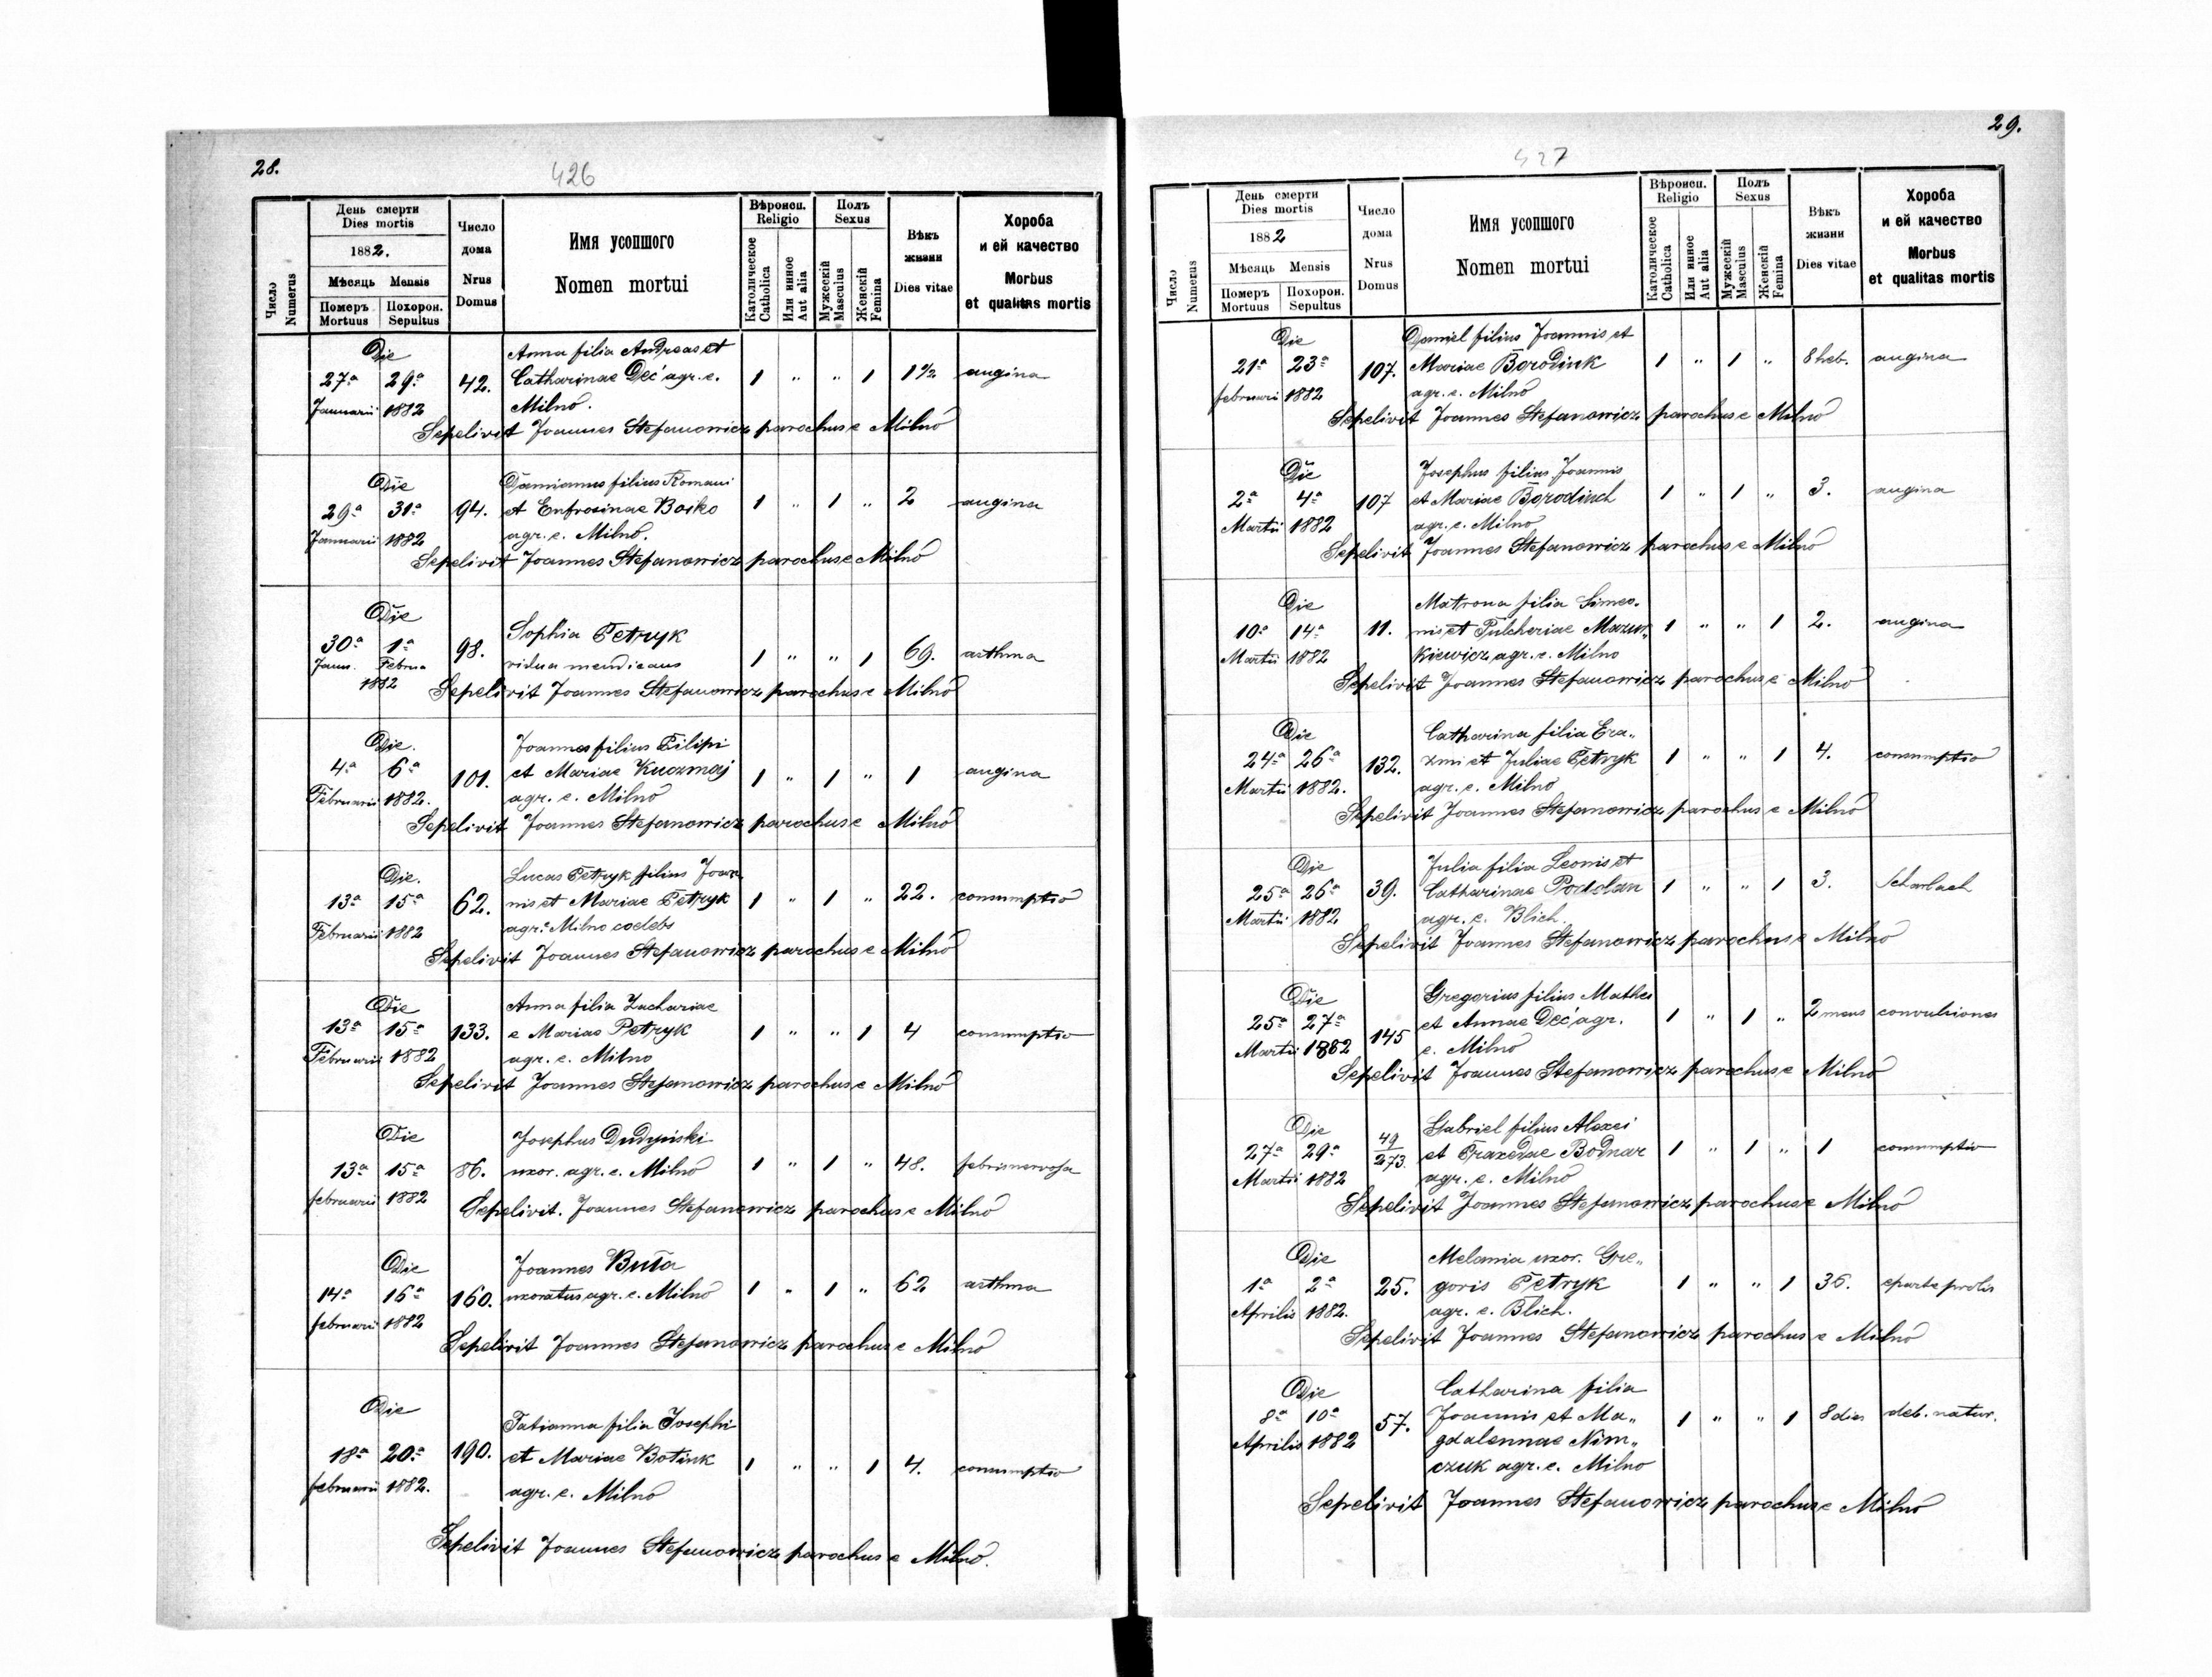 28.
426
Число
Numerus
День смерти
Dies mortis
1882.
Мѣсяць Mensis
Померъ
Mortuus
Похорон.
Sepultus
Число
дома
Nrus
Domus
Имя усопшого
Nomen mortui
Вѣроисп.
Religio
Католическое
Catholica
Или инное
Aut alia
Полъ
Sexus
Мужескій
Masculus
Женскій
Femina
Вѣкъ
жизни
Dies vitae
Хороба
и ей качество
Morbus
et qualitas mortis
Die Anna filia Andreas et
27ª 29ª 42. Catharinae Deć agr. e. 1 " " 1 1½ angina
Januarii 1882 Milno.
Sepelivit Joannes Stefanowicz parochus e Milno
Die Damianus filius Romani
29ª 31ª 94. et Eufrosinae Boiko 1 " 1 " 2 angina
Januarii 1882 agr. e. Milno.
Sepelivit Joannes Stefanowicz parochus e Milno
Die
30ª 1ª 98. Sophia Petryk
Janu. Februa vidua mendicans 1 " " 1 69. asthma
1882
Sepelivit Joannes Stefanowicz parochus e Milno
Die. Joannes filius Filipi
4ª 6ª 101. et Mariae Kuczmaj 1 " 1 " 1 angina
Februarii 1882. agr. e. Milno
Sepelivit Joannes Stefanowicz parochus e Milno
Die. Lucas Petryk filius Joan
13ª 15ª 62. nis et Mariae Petryk 1 " 1 " 22. consumptio
Februarii 1882 agr. e Milno coelebs
Sepelivit Joannes Stefanowicz parochus e Milno
Die Anna filia Zachariae
13ª 15ª 133. e Mariae Petryk 1 " " 1 4 consumptio
Februarii 1882 agr. e. Milno
Sepelivit Joannes Stefanowicz parochus e Milno
Die Josephus Dudyński
13ª 15ª 86. uxor. agr. e. Milno 1 " 1 " 48. febris nervosa
februarii 1882
Sepelivit. Joannes Stefanowicz parochus e Milno
Die Joannes Buta
14ª 16ª 160. uxoratus agr. e. Milno 1 " 1 " 62 asthma
februarii 1882
Sepelivit Joannes Stefanowicz parochus e Milno
Die Tatianna filia Josephi
18ª 20ª 190. et Mariae Botiuk 1 " " 1 4. consumptio
februarii 1882. agr. e. Milno
Sepelivit Joannes Stefanowicz parochus e Milno.
29.
427
Число
Numerus
День смерти
Dies mortis
1882
Мѣсяць Mensis
Померъ
Mortuus
Похорон.
Sepultus
Число
дома
Nrus
Domus
Имя усопшого
Nomen mortui
Вѣроисп.
Religio
Католическое
Catholica
Или инное
Aut alia
Полъ
Sexus
Мужескій
Masculus
Женскій
Femina
Вѣкъ
жизни
Dies vitae
Хороба
и ей качество
Morbus
et qualitas mortis
Die Daniel filius Joannis et
21ª 23ª 107. Mariae Borodiuk 1 " 1 " 8 heb. angina
februari 1882 agr. e. Milno
Sepelivit Joannes Stefanowicz parochus e Milno
Die Josephus filius Joannis
2ª 4ª 107 et Mariae Borodiuch 1 " 1 " 3. angina
Martii 1882 agr. e. Milno
Sepelivit Joannes Stefanowicz parochus e Milno
Die Matrona filia Simeo.
10ª 14ª 11. nis et Pulcheriae Mazur„ 1 " " 1 2. angina
Martii 1882 kiewicz agr. e. Milno
Sepelivit Joannes Stefanowicz parochus e Milno
Die Catharina filia Era„
24ª 26ª 132. zmi et Juliae Petryk 1 " " 1 4. consumptio
Martii 1882. agr. e. Milno
Sepelivit Joannes Stefanowicz parochus e Milno
Die Julia filia Leonis et
25ª 26ª 39. Catharinae Podolan 1 " " 1 3. Scharlach
Martii 1882 agr. e. Blich.
Sepelivit Joannes Stefanowicz parochus e Milno
Die Gregorius filius Mathei
25ª 27ª 145 et Annae Deć agr. 1 " 1 " 2 mens convulsiones
Martii 1882 e. Milno
Sepelivit Joannes Stefanowicz parochus e Milno
Die Gabriel filius Alexei
27ª 29ª 49/273. et Praxedae Bodnar 1 " 1 " 1 consumptio
Martii 1882 agr. e. Milno
Sepelivit Joannes Stefanowicz parochus e Milno
Die Melania uxor. Gre„
1ª 2ª 25. goris Petryk 1 " " 1 36. e parte prolis
Aprilis 1882. agr. e. Blich.
Sepelivit Joannes Stefanowicz parochus e Milno
Die Catharina filia
8ª 10ª 57. Joannis et Ma„ 1 " " 1 8 dies deb. natur.
Aprilis 1882 gdalennae Nim„
czuk agr. e. Milno
Sepelivit Joannes Stefanowicz parochus e Milno